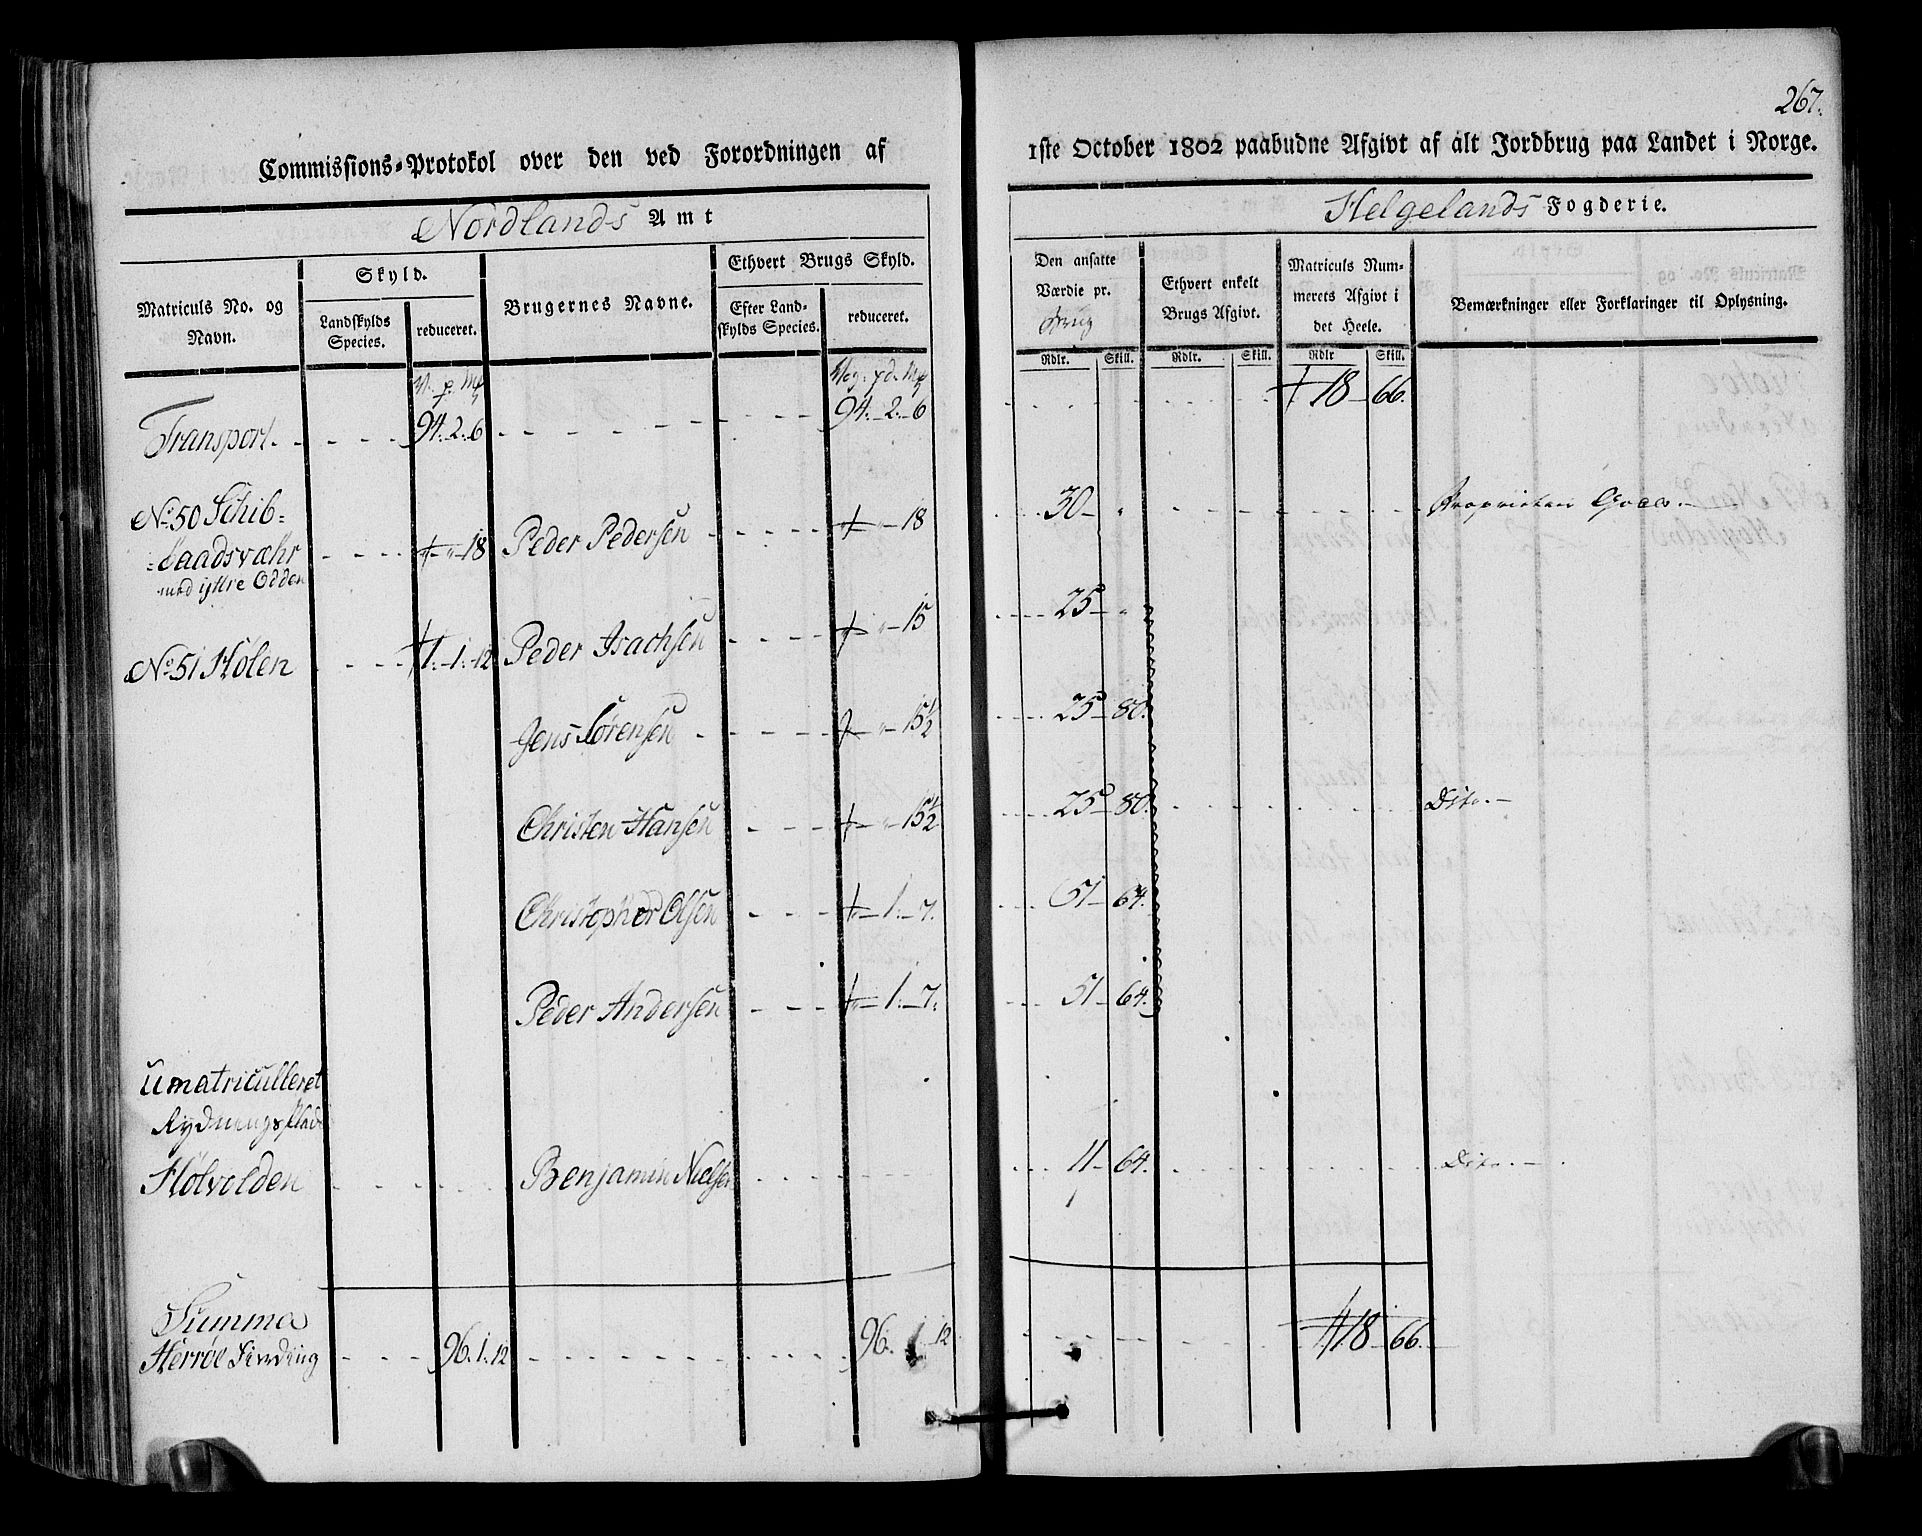 267.
Commissions-Protokol over den ved Forordningen af 1ste October 1802 paabudne Afgivt af alt Jordbrug paa Landet i Norge.
Nordlands Amt
Helgelands Fogderie.
Matriculs No. og Navn.
Skyld.
Landskylds Species.
reduceret.
Brugernes Navne.
Ethvert Brugs Skyld.
Efter Landskylds Species.
reduceret.
Den ansatte Værdie pr. Brug
Ethvert enkelt Brugs Afgivt.
Matriculs Nummerets Afgivt i det Heele.
Bemærkninger eller Forklaringer til Oplysning.
Rdlr. Skill. Rdlr. Skill. Rdlr Skill.
Transport. 94. 2. 6 94. 2. 6 18 66.
No. 50 Schib=
=baadsværhr 18 Peder Pedersen 18 30 Proprietair Goeds.
med ÿttre Odden
No. 51 Hølen 1. 1. 12 Peder Isachsen 15 25
Jens Sørensen 15½ 25 80.
Christen Hansen 15½ 25 80. Dito.
Christopher Olsen 1. 7. 51 64.
Peder Andersen 1. 7. 51 64.
Umatriculleret
Rydningsplads
Holvolden Benjamin Nielsen 11 64. Dito.
Summa
Herrøe Finding 96. 1. 12 96. 12 18 66.